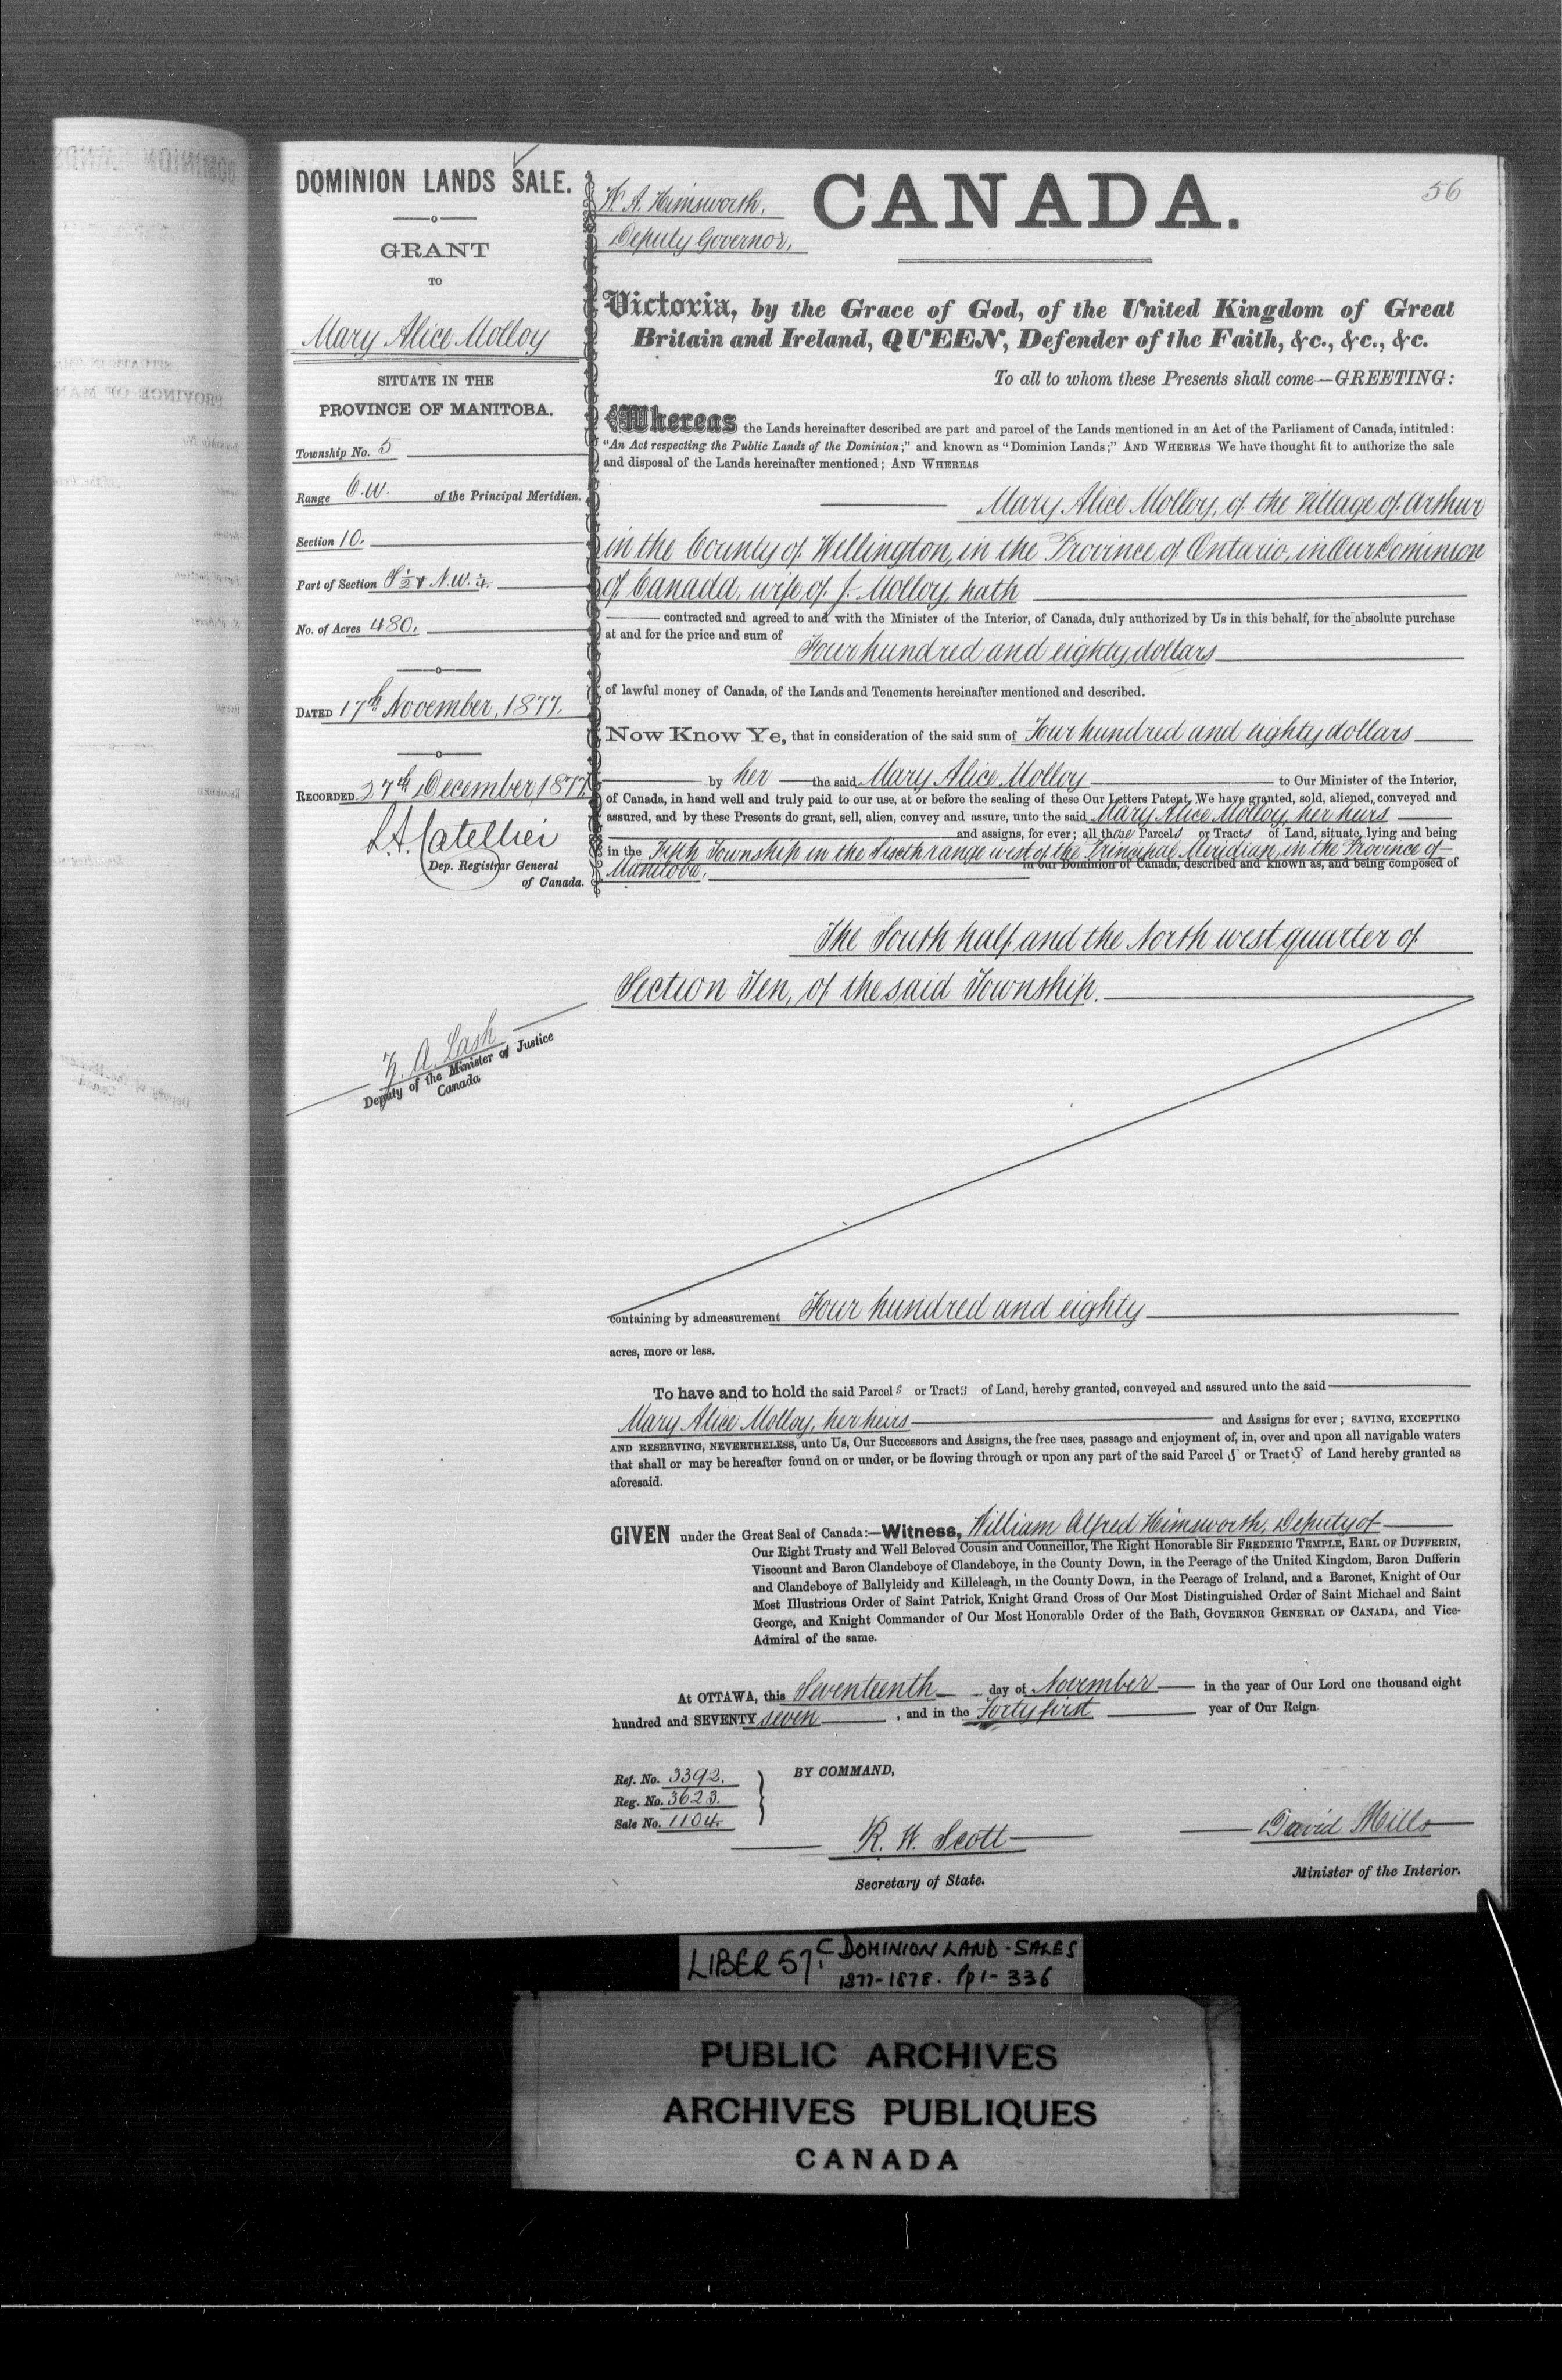 DOMINION LANDS SALE.
GRANT
TO
Mary Alice Molloy
SITUATE IN THE
PROVINCE OF MANITOBA.
Township No. 5
Range 6.W. of the Principal Meridian.
Section 10.
Part of Section S ½ & N.W. ¼.
No. of Acres 480.
DATED 17th November, 1877.
RECORDED 27th December, 1877
L.A. Catellier
Dep. Registrar General
of Canada.
Z. A. Lash
Deputy of the Minister of Justice
Canada
W. A. Himsworth,
Deputy Governor,
CANADA.
56
Victoria, by the Grace of God, of the United Kingdom of Great
Britain and Ireland, QUEEN, Defender of the Faith, &c., &c., &c.
To all to whom these Presents shall come—GREETING:
Whereas the Lands hereinafter described are part and parcel of the Lands mentioned in an Act of the Parliament of Canada, intituled:
"An Act respecting the Public Lands of the Dominion;" and known as "Dominion Lands;" AND WHEREAS We have thought fit to authorize the sale
and disposal of the Lands hereinafter mentioned; AND WHEREAS
Mary Alice Molloy, of the Village of Arthur
in the County of Wellington, in the Province of Ontario, in Our Dominion
of Canada, wife of J. Molloy, hath
contracted and agreed to and with the Minister of the Interior, of Canada, duly authorized by Us in this behalf, for the absolute purchase
at and for the price and sum of Four hundred and eighty dollars
of lawful money of Canada, of the Lands and Tenements hereinafter mentioned and described.
Now Know Ye, that in consideration of the said sum of Four hundred and eighty dollars
by her the said Mary Alice Molloy to Our Minister of the Interior,
of Canada, in hand well and truly paid to our use, at or before the sealing of these Our Letters Patent, We have granted, sold, aliened, conveyed and
assured, and by these Presents do grant, sell, alien, convey and assure, unto the said Mary Alice Molloy, her heirs
and assigns, for ever; all those Parcels or Tracts of Land, situate, lying and being
in the Fifth Township in the Sixth range west of the Principal Meridian, in the Province of
Manitoba, in Our Dominion of Canada, described and known as, and being composed of
The South half and the North west quarter of
Section Ten, of the said Township.
containing by admeasurement Four hundred and eighty
acres, more or less.
To have and to hold the said Parcels or Tracts of Land, hereby granted, conveyed and assured unto the said
Mary Alice Molloy, her heirs and Assigns for ever; SAVING, EXCEPTING
AND RESERVING, NEVERTHELESS, unto Us, Our Successors and Assigns, the free uses, passage and enjoyment of, in, over and upon all navigable waters
that shall or may be hereafter found on or under, or be flowing through or upon any part of the said Parcel s or Tract s of Land hereby granted as
aforesaid.
GIVEN under the Great Seal of Canada:—Witness, William Alfred Himsworth, Deputy of
Our Right Trusty and Well Beloved Cousin and Councillor, The Right Honorable Sir FREDERIC TEMPLE, EARL OF DUFFERIN,
Viscount and Baron Clandeboye of Clandeboye, in the County Down, in the Peerage of the United Kingdom, Baron Dufferin
and Clandeboye of Ballyleidy and Killeleagh, in the County Down, in the Peerage of Ireland, and a Baronet, Knight of Our
Most Illustrious Order of Saint Patrick, Knight Grand Cross of Our Most Distinguished Order of Saint Michael and Saint
George, and Knight Commander of Our Most Honorable Order of the Bath, GOVERNOR GENERAL OF CANADA, and Vice-
Admiral of the same.
At OTTAWA, this Seventeenth day of November in the year of Our Lord one thousand eight
hundred and SEVENTY seven, and in the Forty first year of Our Reign.
Ref. No. 3392.
Reg. No. 3623.
Sale No. 1104.
BY COMMAND,
R. W. Scott
Secretary of State.
David Mills
Minister of the Interior.
LIBER 57C. DOMINION LAND - SALES
1877-1878. Pp 1-336
PUBLIC ARCHIVES
ARCHIVES PUBLIQUES
CANADA